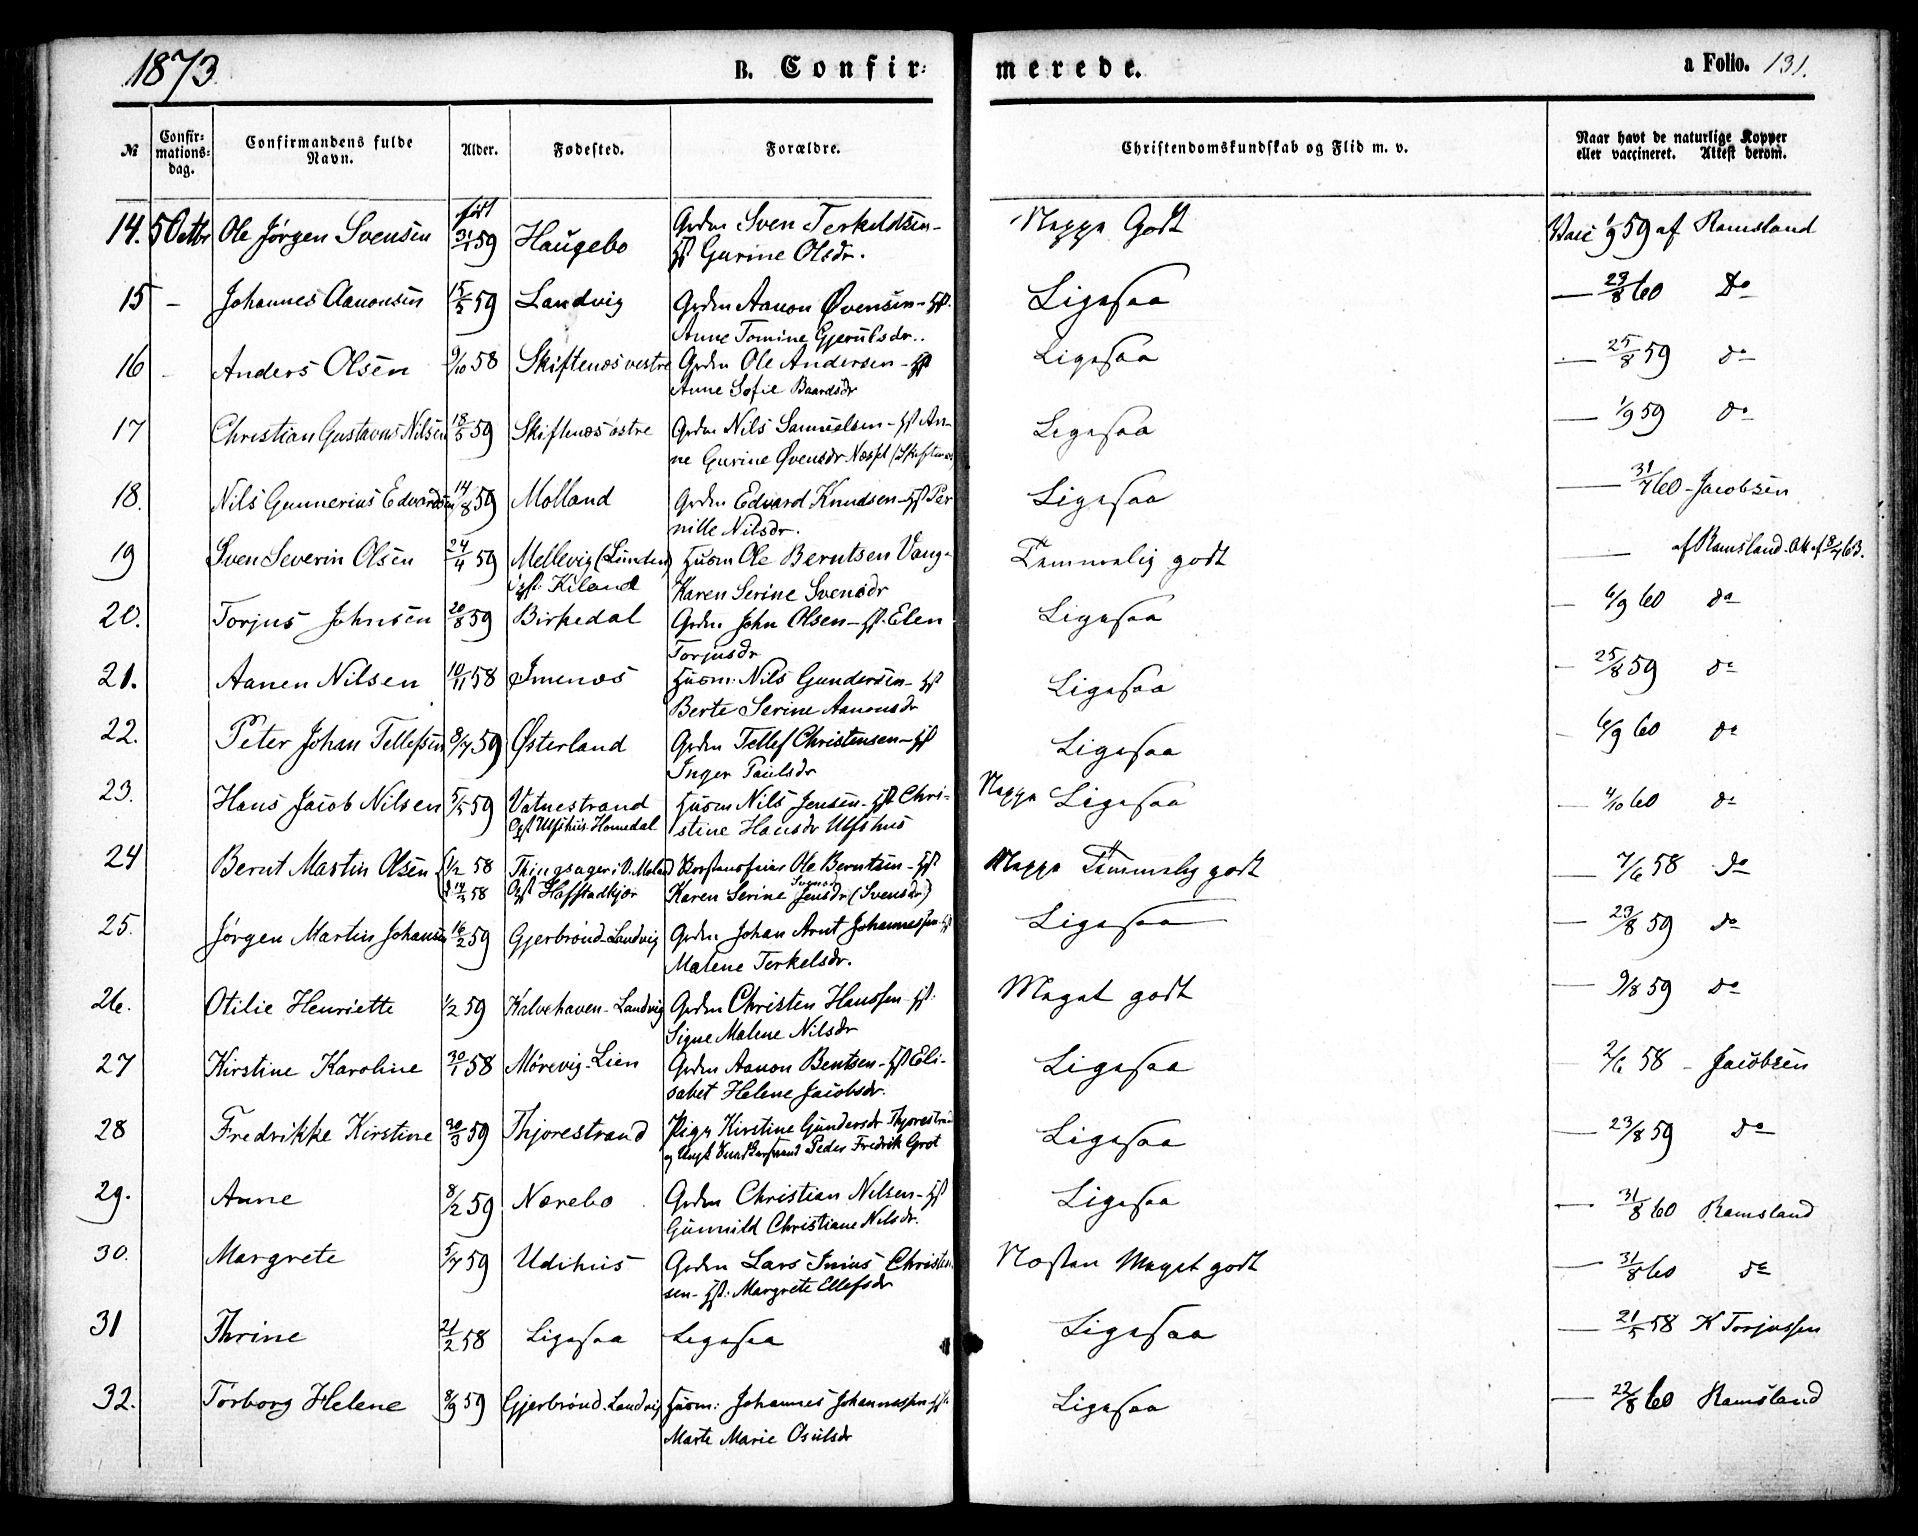 1873
B. Confir-
merede.
a Folio. 131.
№
Confir-
mations-
dag.
Confirmandens fulde
Navn.
Alder.
Fødested.
Forældre.
Christendomskundskab og Flid m. v.
Naar havt de naturlige Kopper
eller vaccineret. Attest derom.
født
14. 5 Octbr Ole Jørgen Svensen 31/1 59 Haugebo Grdm Sven Terkeldsen - Neppe Godt Vacc 1/9 59 af Ramsland
Hst Gurine Olsdr.
15 - Johannes Aanonsen 15/5 59 Landvig Grdm Aanon Øvensen - Hst. Ligesaa — 23/8 60 Do
Anne Tomine Gjerulsdr..
16 - Anders Olsen 9/10 58 Skiftenæs vestre Grdm Ole Andersen - Hst Ligesaa — 25/8 59 do
Anne Sofie Baardsdr
17 Christian Gustavus Nilsen 18/5 59 Skiftenæs østre Grdm Nils Samuelsen - Hst An- Ligesaa — 1/9 59 do
ne Gurine Øvensdr Næsset (Skiftenæs)
18. Nils Gunnerius Edvardsen 14/8 59 Molland Grdm Edvard Knudsen - Hst Per Ligesaa — 31/7 60 - Jacobsen
nille Nilsdr.
19 Sven Severin Olsen 24/4 59 Mellevig (Lunden) Husm Ole Berntsen Vang- Temmelig godt — af Ramsland. Att af 8/7 63.
Opf. Kiland Karen Serine Svensdr
20. Torjus Johnsen 20/8 59 Birkedal Grdm John Olsen - Hst. Elen Ligesaa — 6/9 60 do
Torjusdr
21. Aanen Nilsen 10/11 58 Imenæs Husm. Nils Gundersen - Hst Ligesaa — 25/8 59 do
Berte Serine Aanonsdr
22. Peter Johan Tellefsen 8/7 59 Østerland Grdm Tellef Christensen - Hst Ligesaa - 6/9 60 do
Inger Paulsdr
23. Hans Jacob Nilsen 5/5 59 Vatnestrand Husm Nils Jensen - Hst Chri- Neppe Ligesaa — 4/10 60 do
Opf Ulfshus Homedal stine Hansdr Ulfshus
24 Bernt Martin Olsen 1/2 58 Thingsager i V. Moland Ole Berntsen - Hst Neppe Temmelig godt — 7/6 58 do
14/2 58 Opf Hafstadkjær Karen Serine Jensdr (Svensdr)
25. Jørgen Martin Johansen 16/2 59 Gjerbrønd - Landvig Grdm Johan Arnt Johannessen - Hst Ligesaa — 23/8 59 do
Malene Terkelsdr.
26. Otilie Henriette 1/2 59 Kalvehaven - Landvig Grdm Christen Hansen - Hst. Meget godt — 9/8 59 do
Signe Malene Nilsdr
27 Kirstine Karoline 30/1 58 Mørevig - Lien Grdm Aanon Bentsen - Hst Eli- Ligesaa — 2/6 58 - Jacobsen
sabet Helene Jacobsdr.
28 Fredrikke Kirstine 30/3 59 Thjorestrand Pige Kirstine Gundersdr Thjorestrand Ligesaa — 23/8 59 do
og Ungk Peder Fredrik Grot
29. Anne 8/2 59 Nærebo Grdm Christian Nilsen - Hst Ligesaa — 31/8 60 Ramsland
Gunnild Christiane Nilsdr.
30. Margrete 5/7 59 Udihus Grdm Lars Inius Christen Næsten Meget godt — 31/8 60 do
sen - Hst. Margrete Ellefsdr
31 Thrine 21/2 58 Ligesaa Ligesaa Ligesaa — 21/5 58 K Torjussen
32. Torborg Helene 8/9 59 Gjerbrønd. Landvig Husm: Johannes Johannessen Hst. Ligesaa — 22/8 60 Ramsland
Marte Marie Osulsdr